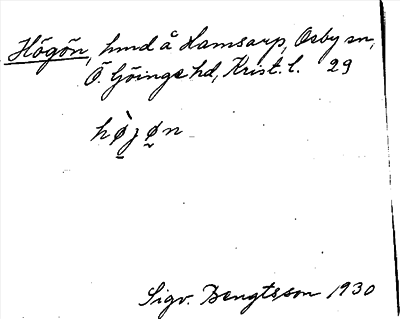 Högön, hmd å Hamsarp, Osby sn,
Ö. Göinge hd, Krist. l. 29
hø̀ʒøn
Sigv. Bengtsson 1930